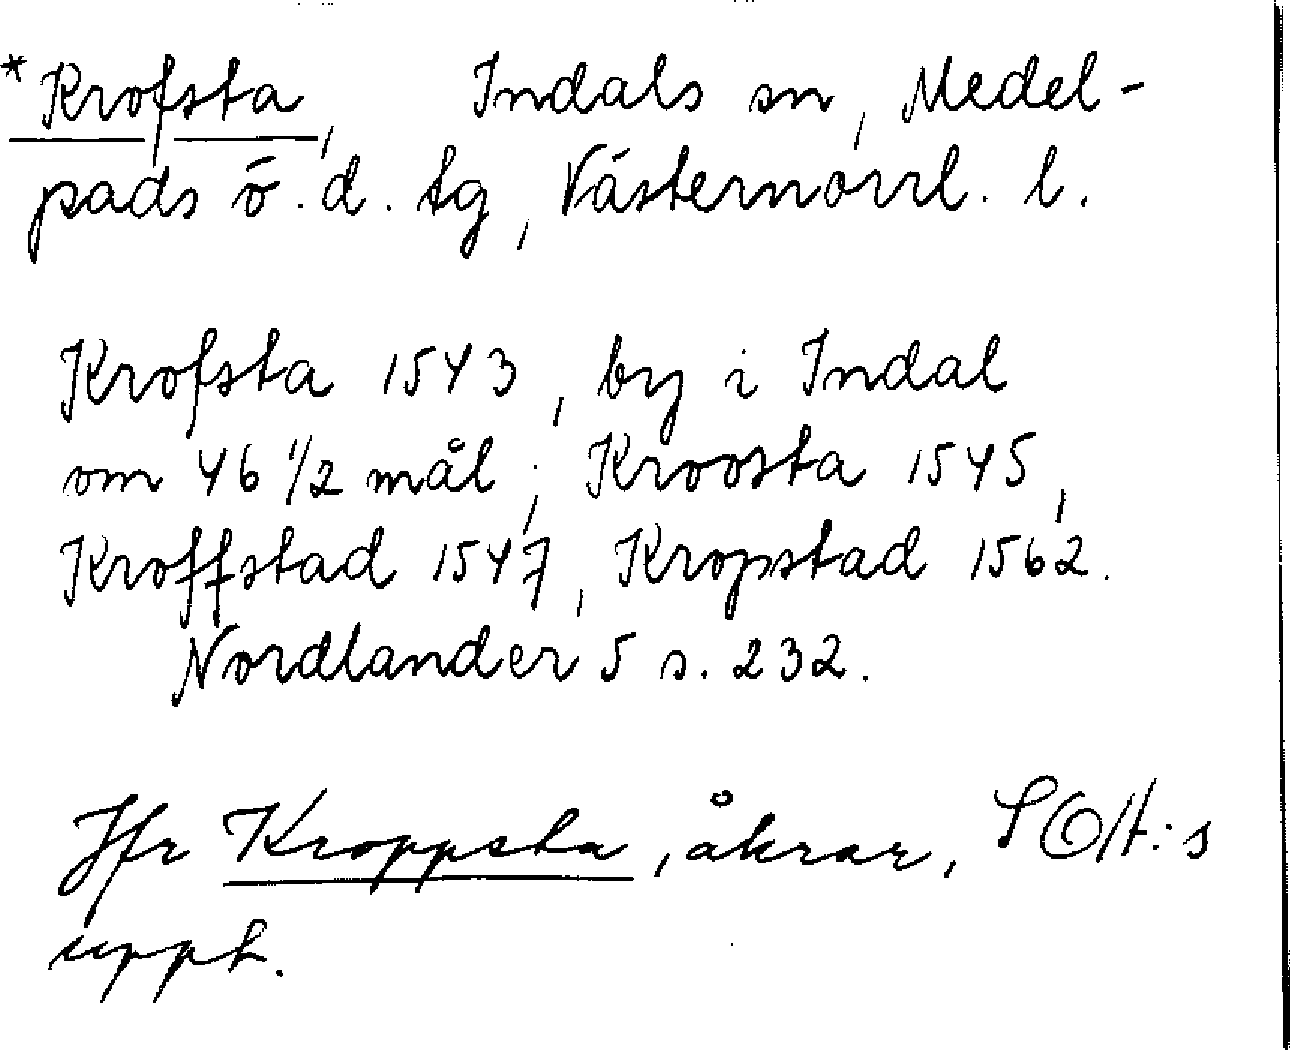 *Krofsta, Indals sn, Medel-
pads ö.d. tg, Västernorrl. l.
Krofsta 1543, by i Indal
om 46 1/2 mål; Kroosta 1545,
Kroffstad 1547, Kropstad 1562.
Nordlander 5 s. 232.
Jfr Kroppsta, åkrar, SOA:s
uppt.